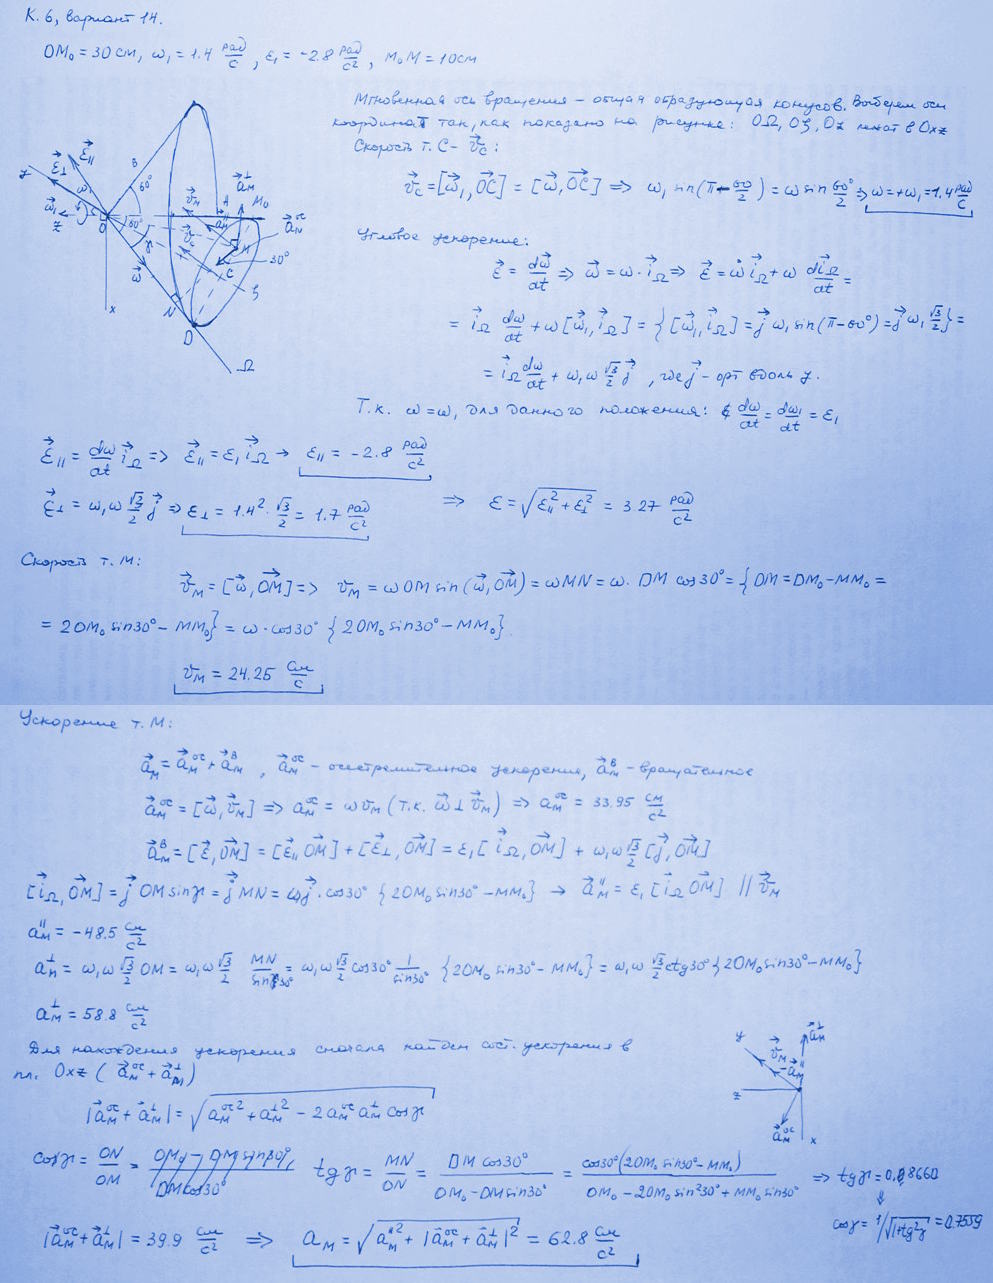 К. 6, вариант 14.
OM₀ = 30 см, ω₁ = 1.4 рад/с, ε₁ = -2.8 рад/с², M₀M = 10 см
Мгновенная ось вращения – общая образующая конусов. Выберем оси
координат так, как показано на рисунке: OΩ, Oζ, Oz лежат в Oxz
Скорость т. C - v⃗_C:
v⃗_C = [ω⃗₁, OC⃗] = [ω⃗, OC⃗] => ω₁ sin(π - 60°/2) = ω sin 60°/2 => ω = +ω₁ = 1.4 рад/с
Угловое ускорение:
ε⃗ = dω⃗/dt => ω⃗ = ω · i⃗_Ω => ε⃗ = ω̇ i⃗_Ω + ω di⃗_Ω/dt =
= i⃗_Ω dω/dt + ω [ω⃗₁, i⃗_Ω] = { [ω⃗₁, i⃗_Ω] = j⃗ ω₁ sin(π - 60°) = j⃗ ω₁ √3/2 } =
= i⃗_Ω dω/dt + ω₁ ω √3/2 j⃗, где j⃗ - орт вдоль y.
Т.к. ω = ω₁ для данного положения: dω/dt = dω₁/dt = ε₁
y ε⃗⊥ ε⃗∥ B 60° ω₁ v⃗_M A a⃗_M^⊥ M₀
ω⃗₁ z O 60° γ v⃗_C a⃗_M^∥ M a⃗_M^ос
ω⃗ C 30°
x N ζ
D Ω
ε⃗∥ = dω/dt i⃗_Ω => ε⃗∥ = ε₁ i⃗_Ω → ε∥ = -2.8 рад/с²
ε⃗⊥ = ω₁ ω √3/2 j⃗ => ε⊥ = 1.4² · √3/2 = 1.7 рад/с² => ε = √(ε∥² + ε⊥²) = 3.27 рад/с²
Скорость т. M:
v⃗_M = [ω⃗, OM⃗] => v_M = ω OM sin(ω⃗, OM⃗) = ω MN = ω · DM cos 30° = { DM = DM₀ - MM₀ =
= 2OM₀ sin30° - MM₀ } = ω · cos30° { 2OM₀ sin30° - MM₀ }
v_M = 24.25 см/с
Ускорение т. M:
a⃗_M = a⃗_M^ос + a⃗_M^в, a⃗_M^ос - осестремительное ускорение, a⃗_M^в - вращательное
a⃗_M^ос = [ω⃗, v⃗_M] => a_M^ос = ω v_M (т.к. ω⃗ ⊥ v⃗_M) => a_M^ос = 33.95 см/с²
a⃗_M^в = [ε⃗, OM⃗] = [ε⃗∥ OM⃗] + [ε⃗⊥, OM⃗] = ε₁ [i⃗_Ω, OM⃗] + ω₁ ω √3/2 [j⃗, OM⃗]
[i⃗_Ω, OM⃗] = j⃗ OM sin γ = j⃗ MN = j⃗ · cos30° { 2OM₀ sin30° - MM₀ } → a⃗_M^∥ = ε₁ [i⃗_Ω OM⃗] ∥ v⃗_M
a_M^∥ = -48.5 см/с²
a_M^⊥ = ω₁ ω √3/2 OM = ω₁ ω √3/2 MN/sin30° = ω₁ ω √3/2 cos30° 1/sin30° { 2OM₀ sin30° - MM₀ } = ω₁ ω √3/2 ctg30° { 2OM₀ sin30° - MM₀ }
a_M^⊥ = 58.8 см/с²
Для нахождения ускорения сначала найдем сост. ускорения в
пл. Oxz ( a⃗_M^ос + a⃗_M^⊥ )
|a⃗_M^ос + a⃗_M^⊥| = √(a_M^ос² + a_M^⊥² - 2 a_M^ос a_M^⊥ cos γ)
y v⃗_M a⃗_M^∥ a⃗_M^⊥ z a⃗_M^ос x
cos γ = ON/OM = (OM₀ - DM sin30°)/(DM cos30°) tg γ = MN/ON = DM cos30°/(OM₀ - DM sin30°) = cos30° (2OM₀ sin30° - MM₀)/(OM₀ - 2OM₀ sin²30° + MM₀ sin30°) => tg γ = 0.8660
cos γ = 1/√(1+tg²γ) = 0.7559
|a⃗_M^ос + a⃗_M^⊥| = 39.9 см/с² => a_M = √(a_M^∥² + |a⃗_M^ос + a⃗_M^⊥|²) = 62.8 см/с²